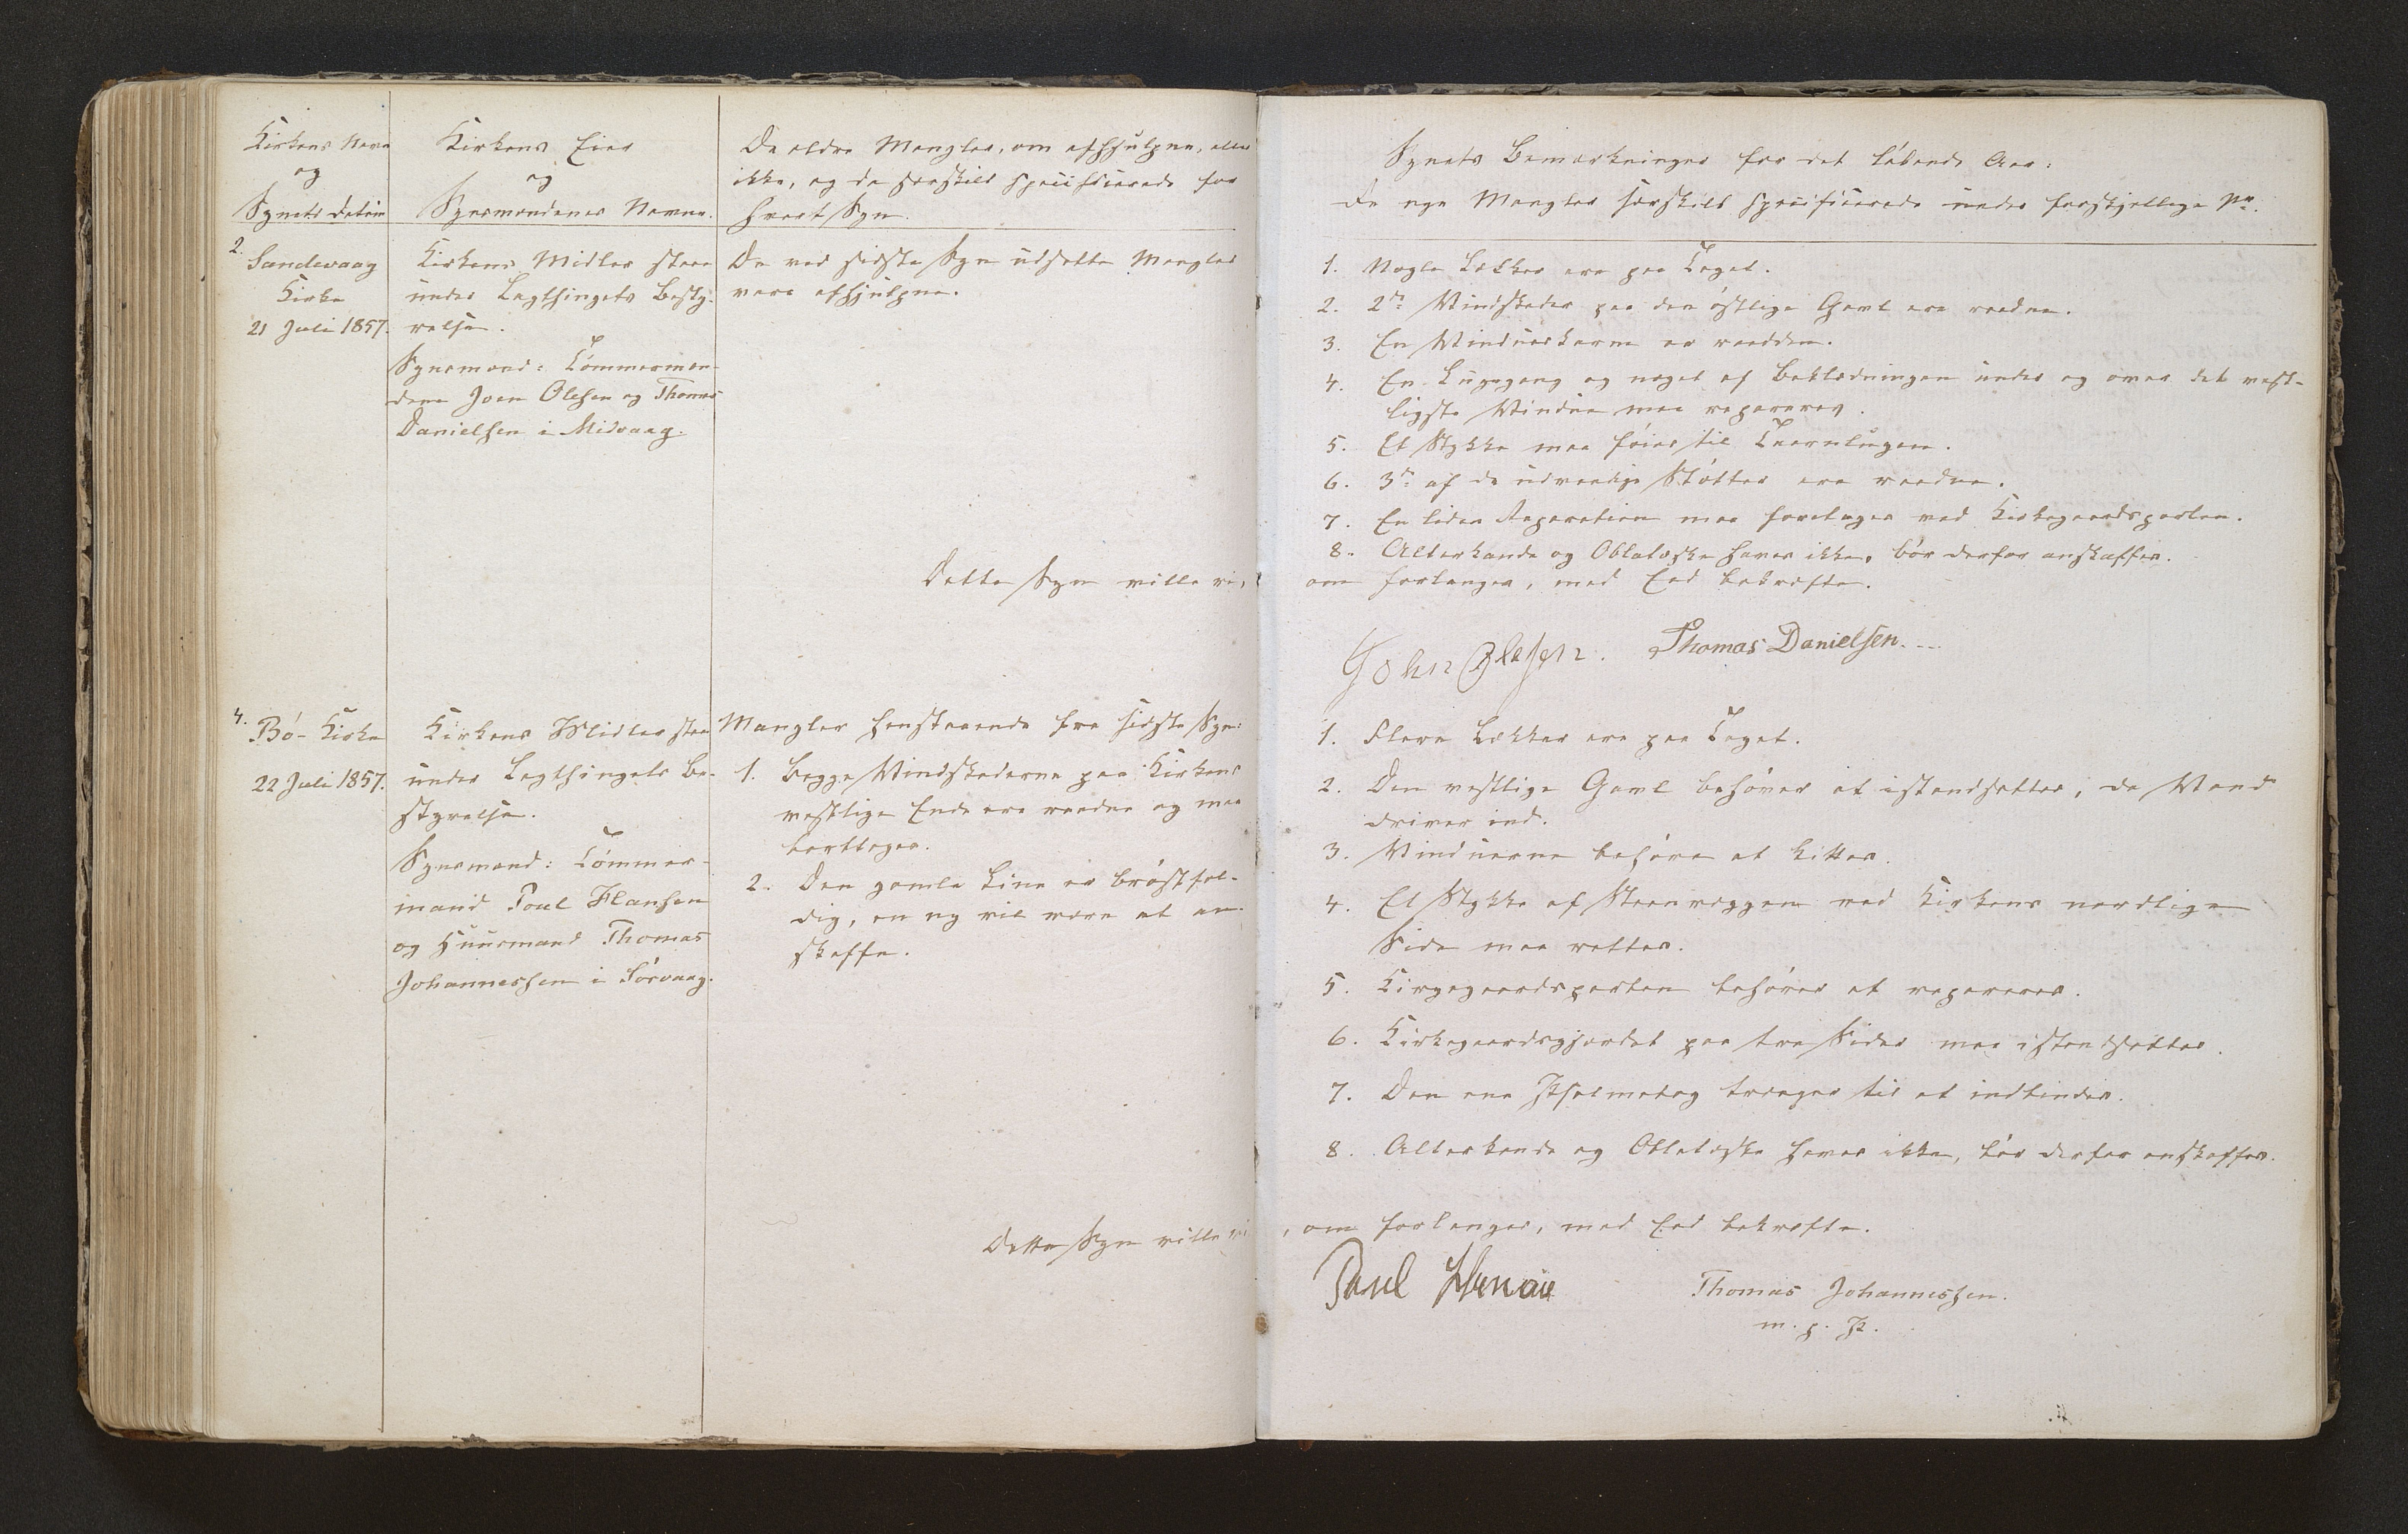 Kirkens Navn
og
Synets datum
Kirkens Eier
og
Synsmændenes Navne.
De ældre Mangler, om afhjulpne, eller
ikke, og da særskilt specificerede for
hvert Syn.
2.
Sandevaag
Kirke
21 Juli 1857.
Kirkens Midler staae
under Lagthingets Besty-
relse.
Synsmænd: Tømmermæn-
dene Joen Olesen og Thomas
Danielsen i Midvaag.
De ved sidste Syn udsatte Mangler
vare afhjulpne.
Dette Syn ville vi,
4.
Bø- Kirke
22 Juli 1857.
Kirkens Midler staae
under Lagthingets Be-
styrelse.
Synsmænd: Tømmer-
mand Poul Hansen
og Huusmand Thomas
Johannessen i Sørvaag.
Mangler henstaaende fra sidste Syn:
1. Begge Vindskederne paa Kirkens
vestlige Ende ere raadne og maa
borttages.
2. Den gamle Line er brøstfæl-
dig, en ny vil være at an-
skaffe.
Dette Syn ville vi
Synets Bemærkninger for det løbende Aar:
De nye Mangler særskilt specificerede under forskjellige No.
1. Nogle Lækker ere paa Taget.
2. 2de Vindskeder paa den østlige Gavl ere raadne.
3. En Vindueskarm er raadden.
4. En Lugegang og noget af Beklædningen under og over det vest-
ligste Vindue maa repareres.
5. Et Stykke maa føies til Taarnlugen.
6. 3de af de udvendige Støtter ere raadne.
7. En liden Reparation maa foretages ved Kirkegaardsporten.
8. Alterkande og Oblatæske haves ikke, bør derfor anskaffes.
om forlanges, med Eed bekræfte.
John Olesen. Thomas Danielsen.
1. Flere Lækker ere paa Taget.
2. Den vestlige Gavl behøver at istandsættes, da Vand
driver ind.
3. Vinduerne behøve at kittes.
4. Et Stykke af Steenvæggen ved Kirkens nordlige
Side maa rettes.
5. Kirgegaardsporten behøver at repareres.
6. Kirkegaardsgjærdet paa tre Sider maa istandsættes.
7. Den ene Psalmebog trænger til at indbindes.
8. Alterkande og Oblatæske haves ikke, bør derfor anskaffes.
, om forlanges, med Eed bekræfte.
Poul
Thomas Johannessen.
m. f. P.